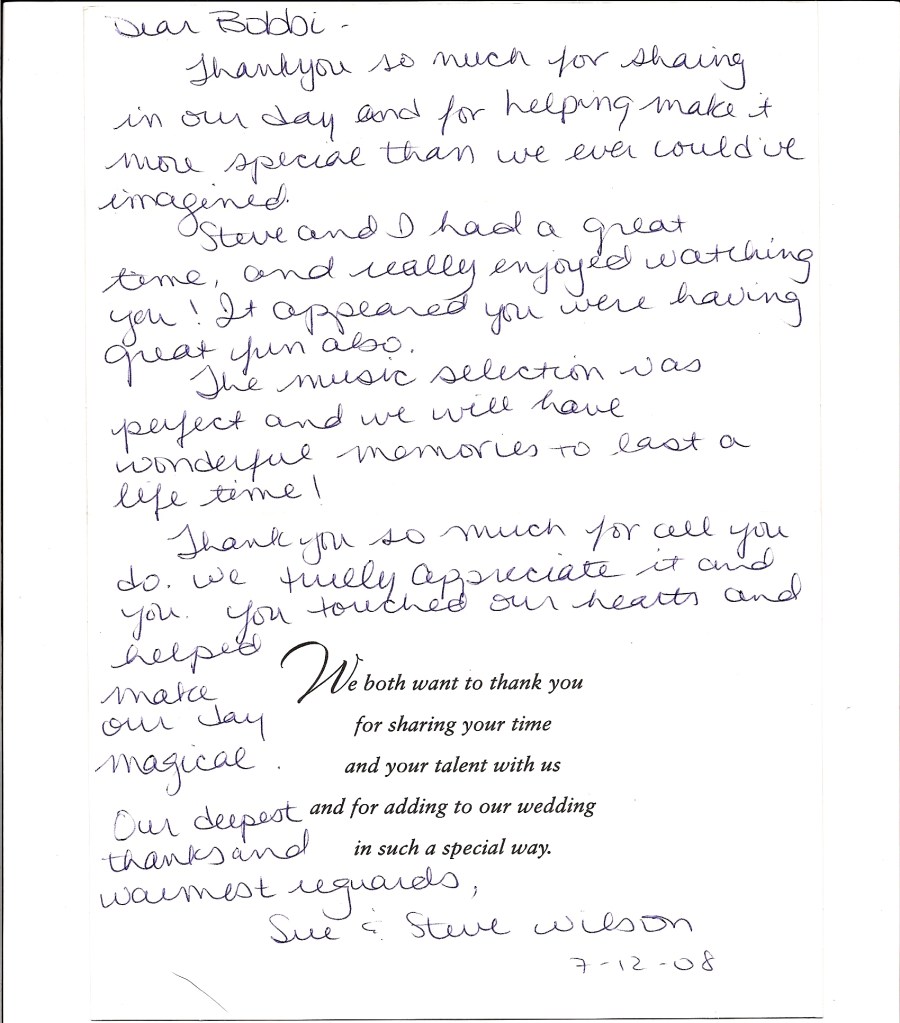 Dear Bobbi -
Thankyou so much for sharing
in our day and for helping make it
more special than we ever could've
imagined.
Steve and I had a great
time, and really enjoyed watching
you! It appeared you were having
great fun also.
The music selection was
perfect and we will have
wonderful memories to last a
life time!
Thank you so much for all you
do. We truelly appreciate it and
you. You touched our hearts and
helped
make
our day
magical.
We both want to thank you
for sharing your time
and your talent with us
and for adding to our wedding
in such a special way.
Our deepest
thanks and
warmest reguards,
Sue & Steve Wilson
7-12-08